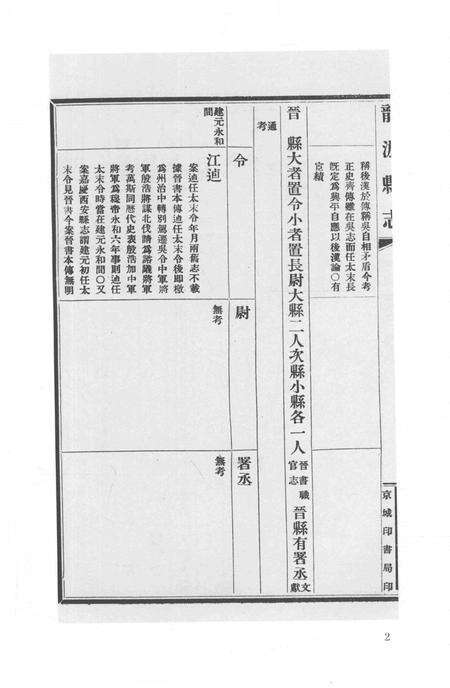 龍游縣志
京城印書局印
稱後漢於傳稱吳自相矛盾今考
正史齊傳雖在吳志而任太末長
旣定爲興平自應以後漢論○有
宦績
晉 縣大者置令小者置長尉大縣二人次縣小縣各一人晉書職官志晉縣有署丞文獻
通考
令 尉 署丞
建元永和間
江逌 無考 無考
案逌任太末令年月兩舊志不載
據晉書本傳逌任太末令後卽檄
爲州治中轉別駕遷吳令中軍將
軍殷浩將謀北伐請爲諮議將軍
考萬斯同歷代史表殷浩加中軍
將軍爲穆帝永和六年事則逌任
太末令時當在建元永和間○又
案嘉慶西安縣志謂建元初任太
末令見晉書今案晉書本傳無明
2